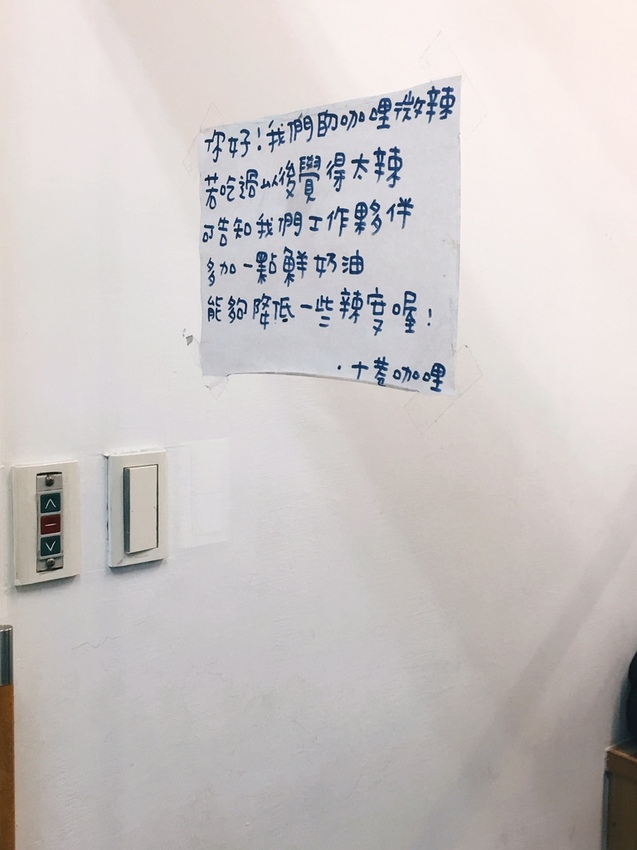 你好!我們的咖哩微辣
若吃過以後覺得太辣
可告知我們工作夥伴
多加一點鮮奶油
能夠降低一些辣度喔!
·十巷咖哩